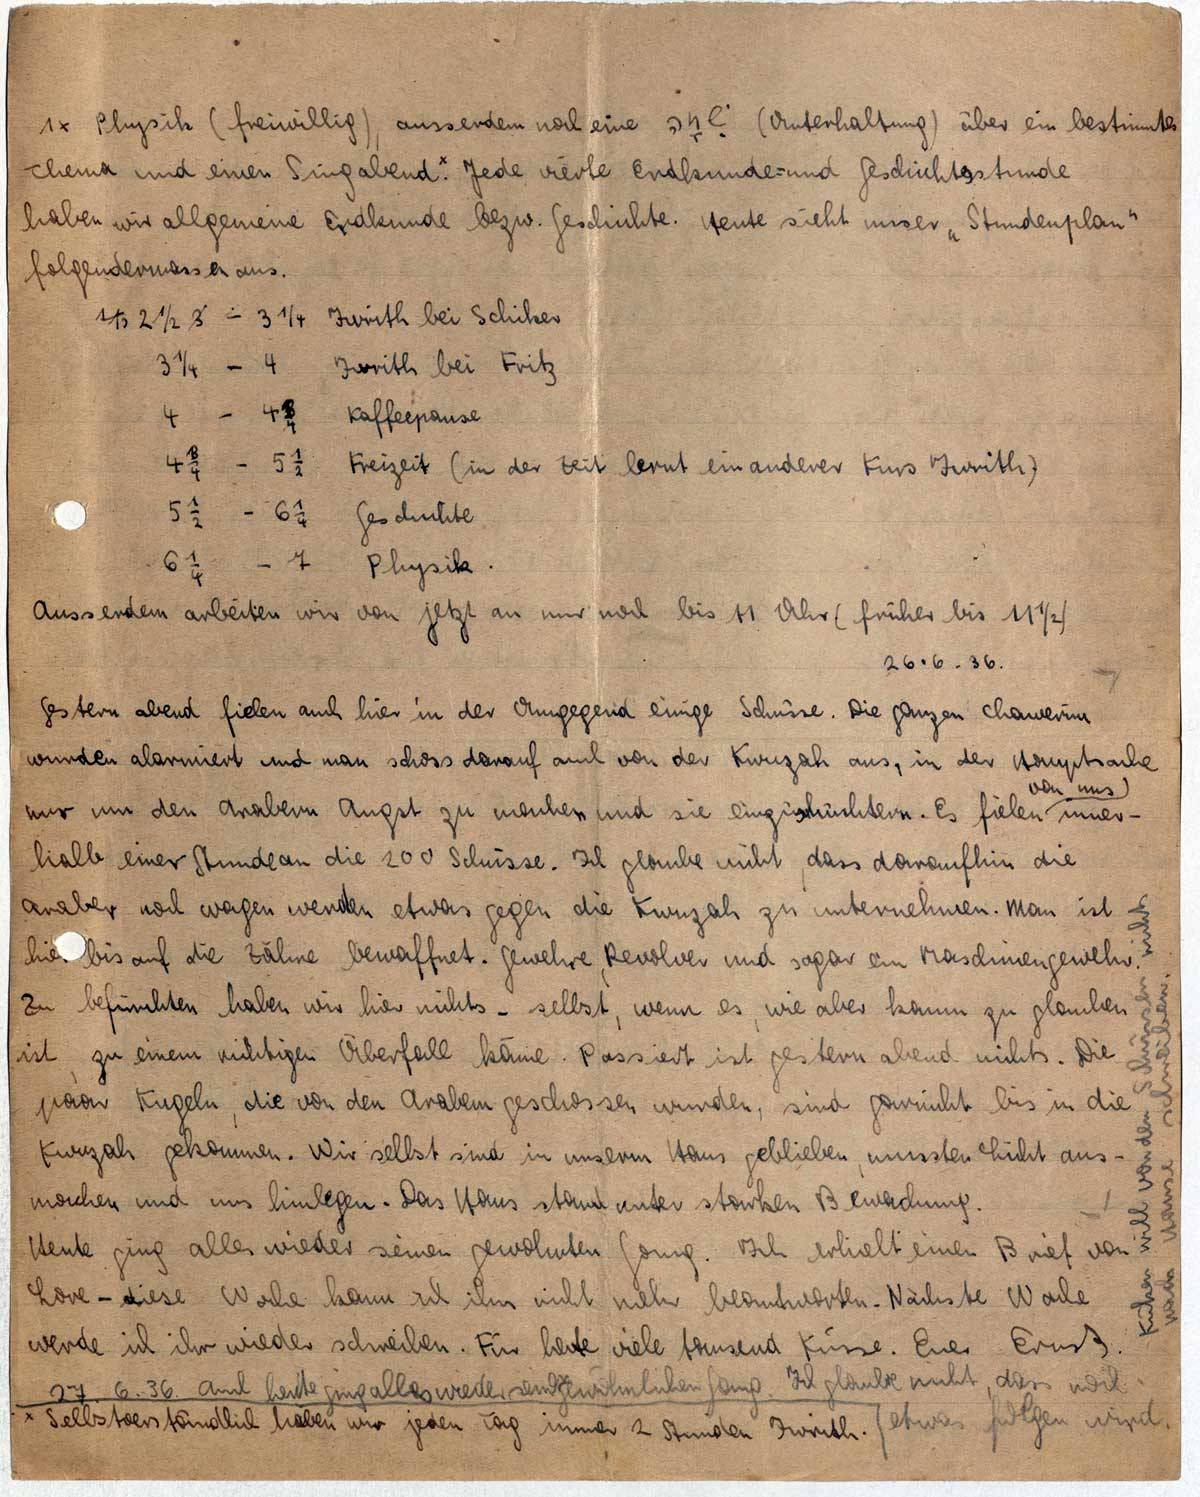 1x Physik (freiwillig), ausserdem noch eine שיחה (Unterhaltung) über ein bestimmtes
Thema und einen Singabend.x Jede vierte Erdkunde= und Geschichtsstunde
haben wir allgemeine Erdkunde bezw. Geschichte. Heute sieht unser „Stundenplan"
folgendermassen aus.
2 1/2 - 3 1/4 Iwrith bei Schiker
3 1/4 - 4 Iwrith bei Fritz
4 - 4 3/4 Kaffeepause
4 3/4 - 5 1/2 Freizeit (in der Zeit lernt ein anderer Kurs Iwrith)
5 1/2 - 6 1/4 Geschichte
6 1/4 - 7 Physik.
Ausserdem arbeiten wir von jetzt an nur noch bis 11 Uhr (früher bis 11 1/2)
26.6.36.
Gestern abend fielen auch hier in der Umgegend einige Schüsse. Die ganzen Chawerim
wurden alarmiert und man schoss darauf auch von der Kwuzah aus, in der Hauptsache
nur um den Arabern Angst zu machen und sie einzuschüchtern. Es fielen von uns inner-
halb einer Stunde an die 200 Schüsse. Ich glaube nicht, dass daraufhin die
Araber noch wagen werden etwas gegen die Kwuzah zu unternehmen. Man ist
hier bis auf die Zähne bewaffnet. Gewehre, Revolver und sogar ein Maschinengewehr.
Zu befürchten haben wir hier nichts - selbst, wenn es, wie aber kaum zu glauben
ist, zu einem richtigen Überfall käme. Passiert ist gestern abend nichts. Die
paar Kugeln, die von den Arabern geschossen wurden, sind garnicht bis in die
Kwuzah gekommen. Wir selbst sind in unserm Haus geblieben, mussten Licht aus-
machen und uns hinlegen. Das Haus stand unter starken Bewachung.
Heute ging alles wieder seinen gewohnten Gang. Ich erhielt einen Brief von
Lore - diese Woche kann ich ihn nicht mehr beantworten. Nächste Woche
werde ich ihr wieder schreiben. Für heute viele tausend Küsse. Euer Ernst.
27.6.36. Auch heute ging alles wieder seinen gewöhnlichen Gang. Ich glaube nicht, dass noch
etwas folgen wird.
x Selbstverständlich haben wir jeden Tag immer 2 Stunden Iwrith.
will von den Schüssen nichts
nach Hause schreiben.